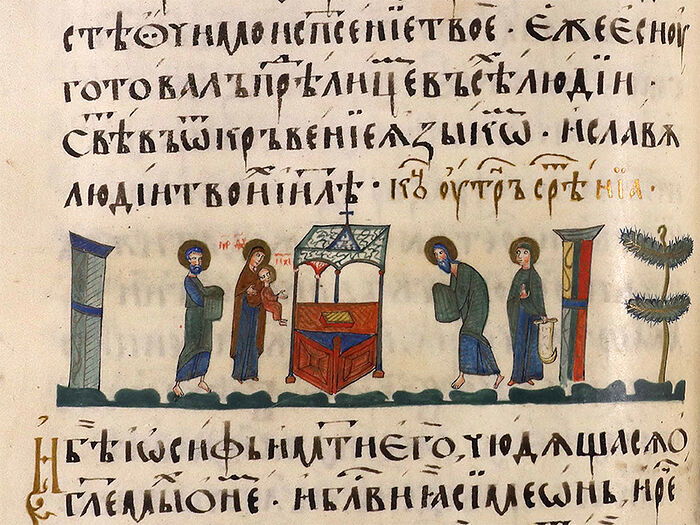 стѣ ѻчи мои сп҃сенїе твое · еже еси оу
готовалъ прѣⷣ лицемъ всѣ людїи ·
свѣ въ ѿкръвенїе ѧзыкѡ · и славѫ
людїи твои їил҃ѣ · оутрь срѣ нїа ·
И бѣ іѡсифь и мт҃и его, чюдѧщасѧ ѡ
гл҃емыⷯ ѡ не · и бл҃ви ѧ сїмеѡнь, и ре